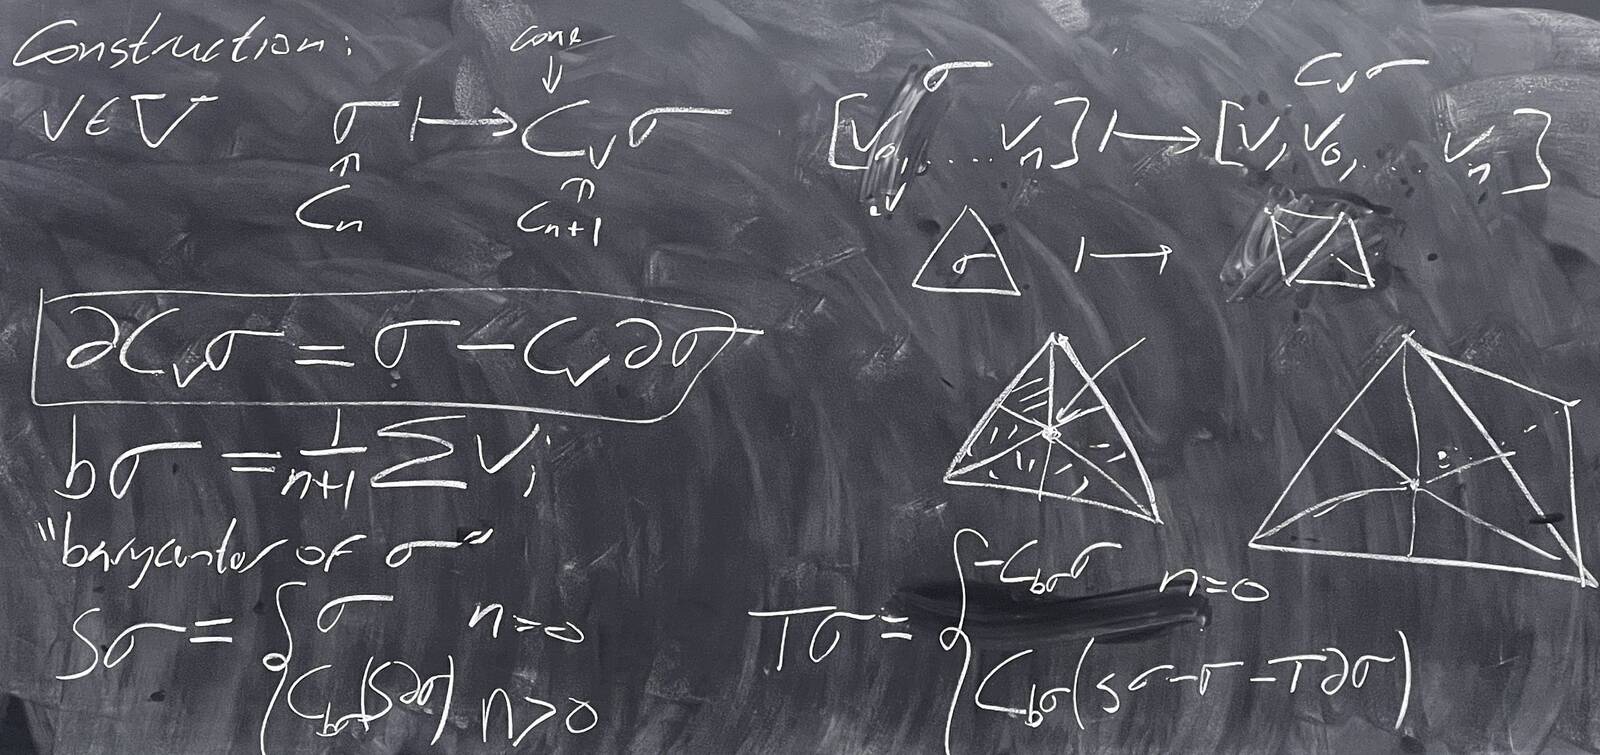 Construction:
cone
↓
v ∈ V σ ↦ C_v σ
⇑ ⇑
C_n C_{n+1}
σ C_v σ
[v_0, .... v_n] ↦ [v, v_0, ... v_n]
σ ↦
∂C_vσ = σ − C_v∂σ
bσ = 1/(n+1) ∑ v_i
"barycenter of σ"
Sσ = { σ n=0
C_{bσ}(S∂σ) n>0
Tσ = { −C_{bσ}σ n=0
C_{bσ}(Sσ−σ−T∂σ)